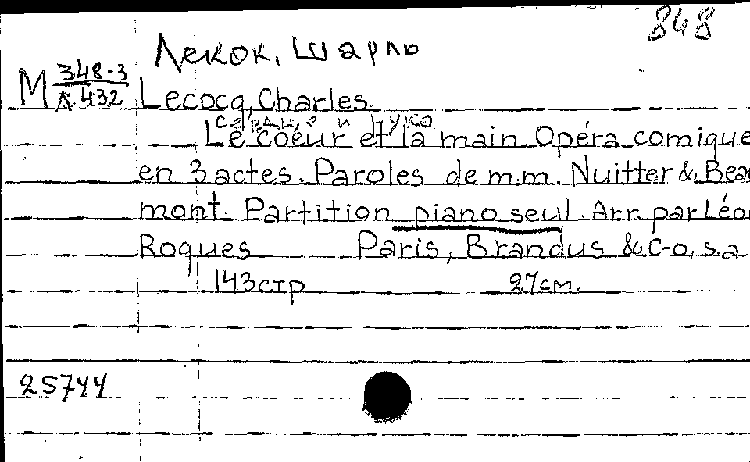 848
Лекок, Шарль
М 348-3
Л 432 Lecocq, Charles
Le coeur et la main Opéra comique
en 3 actes. Paroles de m.m. Nuitter & Beau
mont. Partition piano seul. Arr. par Léon
Roques Paris, Brandus & C-o, s.a
143 стр 27 см.
25744